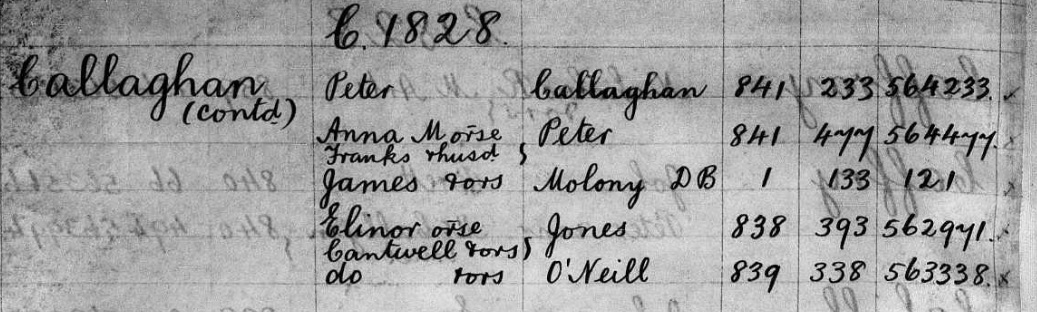 C. 1828.
Callaghan Peter Callaghan 841 233 564233. x
(contd)
Anna M orse Peter 841 477 564477. x
Franks & husd }
James & ors Molony DB 1 133 121 x
Elinor orse Jones 838 393 562971. x
Cantwell & ors }
do & ors O'Neill 839 338 563338. x